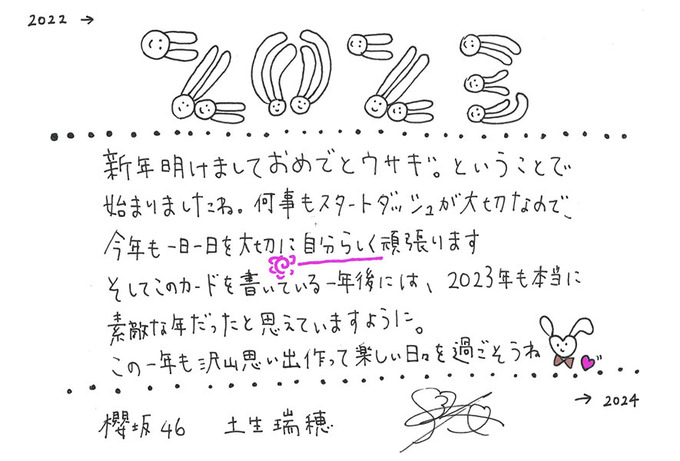 2022 →
2023
新年明けましておめでとウサギ。ということで
始まりましたね。何事もスタートダッシュが大切なので、
今年も一日一日を大切に自分らしく頑張ります
そしてこのカードを書いている一年後には、2023年も本当に
素敵な年だったと思えていますように。
この一年も沢山思い出作って楽しい日々を過ごそうね
→ 2024
櫻坂46 土生瑞穂